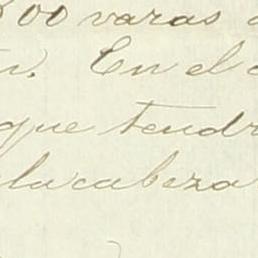 00 varas
En el
que tendr
la cabeza